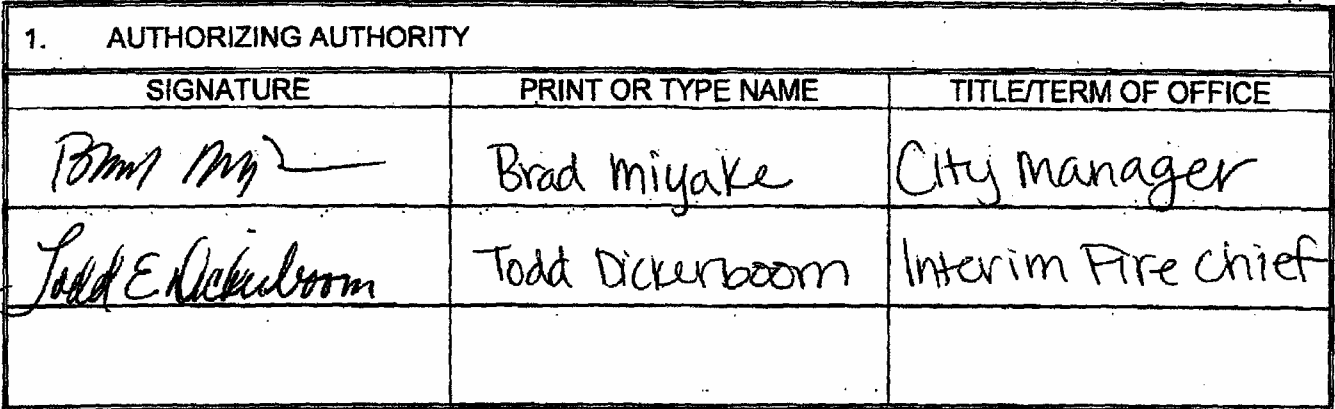 1. AUTHORIZING AUTHORITY
SIGNATURE PRINT OR TYPE NAME TITLE/TERM OF OFFICE
Brad Miyake City Manager
Todd E Dickerboom Todd Dickerboom Interim Fire Chief